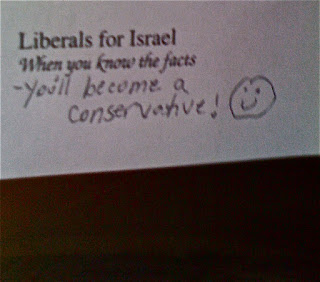 Liberals for Israel
When you know the facts
- You'll become a
conservative!